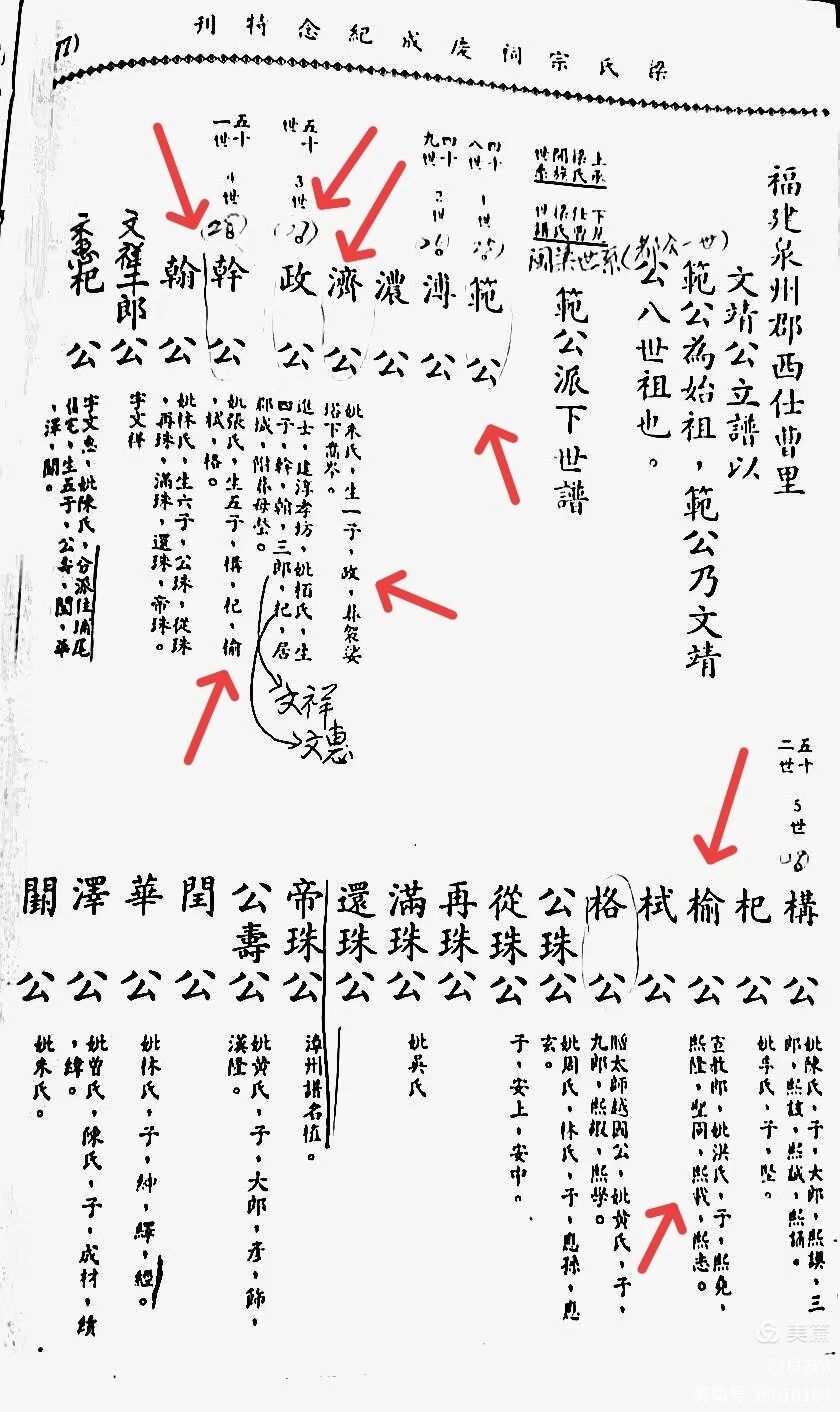 梁氏宗祠慶成紀念特刊
福建泉州郡西仕曹里
文靖公立譜以
範公為始祖，範公乃文靖
公八世祖也。
上承梁氏開族世系
下見梁氏世
閩梁世系(都公一世)
範公派下世譜
四十八世
1世
(25)
範公
四十九世
2世
(26)
溥公
濃公
濟公
妣朱氏，生一子，政，葬袈裟塔下嵩岑。
五十世
3世
(27)
政公
進士，建淳孝坊，妣栢氏，生四子，幹，翰，三郎，杞，居郡城，附葬母塋。
文祥
文惠
五十一世
4世
(28)
幹公
妣張氏，生五子，構，杞，榆，栻，格。
翰公
妣林氏，生六子，公珠，從珠，再珠，滿珠，還珠，帝珠。
文祥
三郎公
字文祥
文惠
杞公
字文惠，妣陳氏，分派住埔尾住宅，生五子，公壽，閏，華，澤，關。
五十二世
5世
構公
妣陳氏，子，大郎，熙謨，三郎，熙誼，熙誠，熙誦。
杞公
妣李氏，子，堅。
榆公
宣教郎，妣洪氏，子，熙堯，熙隆，堅同，熙載，熙悫。
栻公
格公
贈太師越國公，妣黃氏，子，九郎，熙嘏，熙學。
公珠公
妣周氏，林氏，子，應孫，應玄。
從珠公
子，安上，安中。
再珠公
滿珠公
妣吳氏
還珠公
帝珠公
漳州譜名值。
公壽公
妣黃氏，子，大郎，彥，飾，漢隆。
閏公
華公
妣林氏，子，紳，繹，經。
澤公
妣曾氏，陳氏，子，成材，績，緯。
關公
妣朱氏。
美篇
@良友a
美篇号:38610164